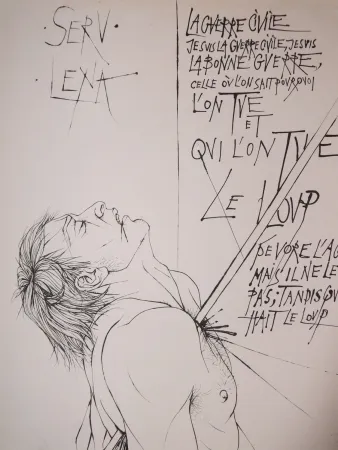 ·SERV·
LEXA
LA GUERRE CIVILE
JE SUIS LA GUERRE CIVILE, JE SUIS
LA BONNE GUERRE,
CELLE OÙ L'ON SAIT POURQUOI
L'ON TUE
ET
QUI L'ON TUE
LE LOUP
DEVORE L'AG
MAIS IL NE LE
PAS; TANDIS QU
HAIT LE LOUP